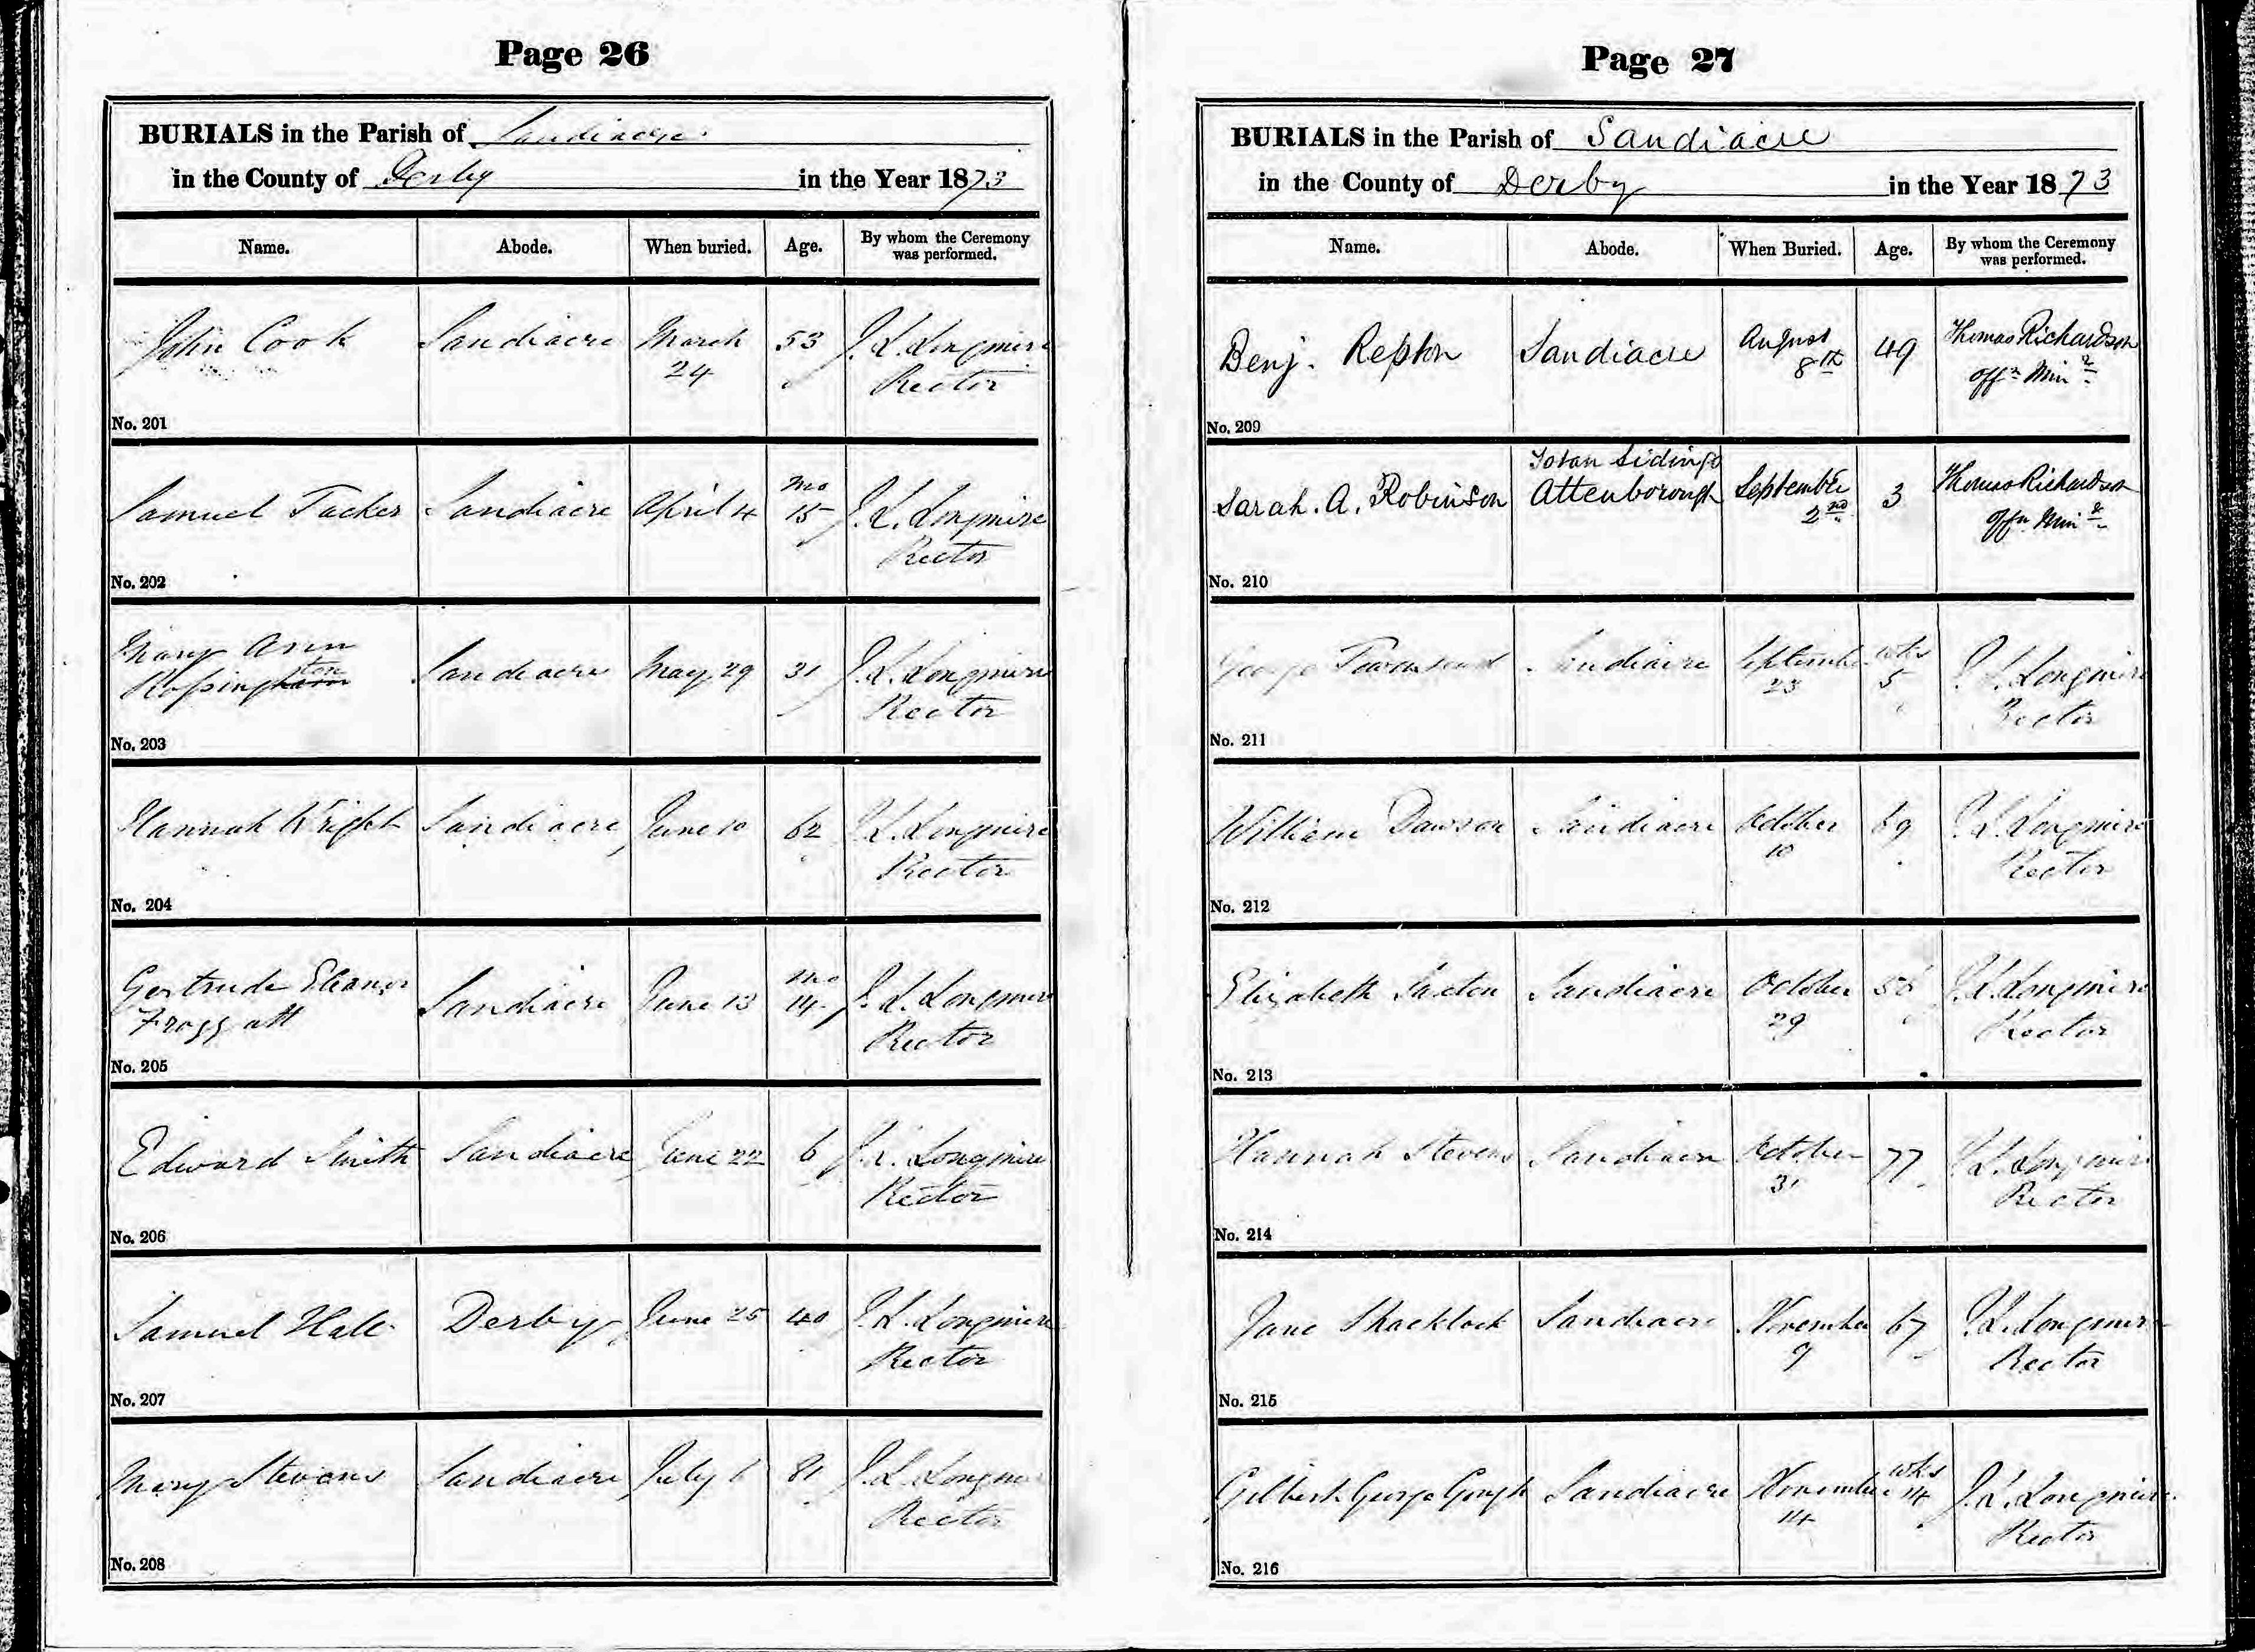 Page 26
BURIALS in the Parish of Sandiacre
in the County of Derby in the Year 1873
Name. Abode. When buried. Age. By whom the Ceremony was performed.
John Cook Sandiacre March 24 53 J. L. Longmire Rector
No. 201
Samuel Tucker Sandiacre April 4 mo 15 J. L. Longmire Rector
No. 202
Mary Ann Rossington Sandiacre May 29 31 J. L. Longmire Rector
No. 203
Hannah Wright Sandiacre June 10 62 J. L. Longmire Rector
No. 204
Gertrude Eleanor Froggatt Sandiacre June 13 mo 14 J. L. Longmire Rector
No. 205
Edward Smith Sandiacre June 22 6 J. L. Longmire Rector
No. 206
Samuel Hall Derby June 25 40 J. L. Longmire Rector
No. 207
Mary Stevens Sandiacre July 6 81 J. L. Longmire Rector
No. 208
Page 27
BURIALS in the Parish of Sandiacre
in the County of Derby in the Year 1873
Name. Abode. When Buried. Age. By whom the Ceremony was performed.
Benj. Repton Sandiacre August 8th 49 Thomas Richardson Offg Minr
No. 209
Sarah. A. Robinson Toton Sidings Attenborough September 2nd 3 Thomas Richardson Offg Minr
No. 210
George Townsend Sandiacre September 23 wks 5 J. L. Longmire Rector
No. 211
William Dawson Sandiacre October 10 69 J. L. Longmire Rector
No. 212
Elizabeth Saxton Sandiacre October 29 J. L. Longmire Rector
No. 213
Hannah Stevens Sandiacre October 31 77 J. L. Longmire Rector
No. 214
Jane Shacklock Sandiacre November 9 67 J. L. Longmire Rector
No. 215
Gilbert George Gough Sandiacre November 14 wks 14 J. L. Longmire Rector
No. 216